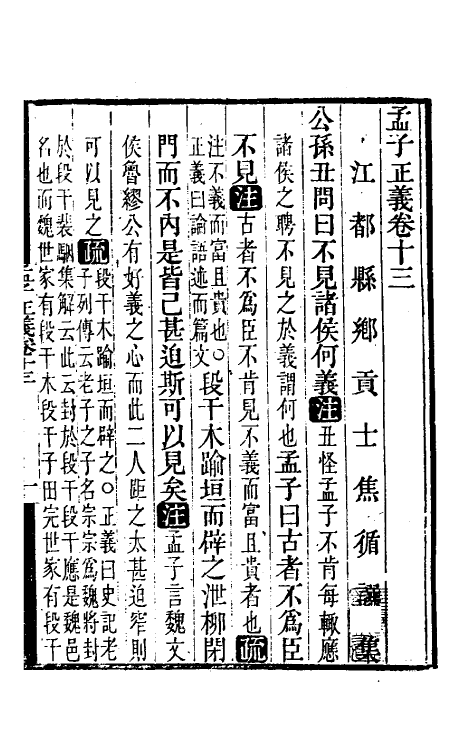 孟子正義卷十三
江都縣鄉貢士焦循譔集
公孫丑問曰不見諸侯何義注丑怪孟子不肯每輒應
諸侯之聘不見之於義謂何也孟子曰古者不爲臣
不見注古者不爲臣不肯見不義而富且貴者也疏
注不義而富且貴也○
正義曰論語述而篇文
段干木踰垣而辟之泄柳閉
門而不內是皆已甚迫斯可以見矣注孟子言魏文
侯魯繆公有好義之心而此二人距之太甚迫窄則
可以見之疏
段干木踰垣而辟之○正義曰史記老
子列傳云老子之子名宗宗爲魏將封
於段干裴駰集解云此云封於段干段干應是魏邑
名也而魏世家有段干木段干子田完世家有段干